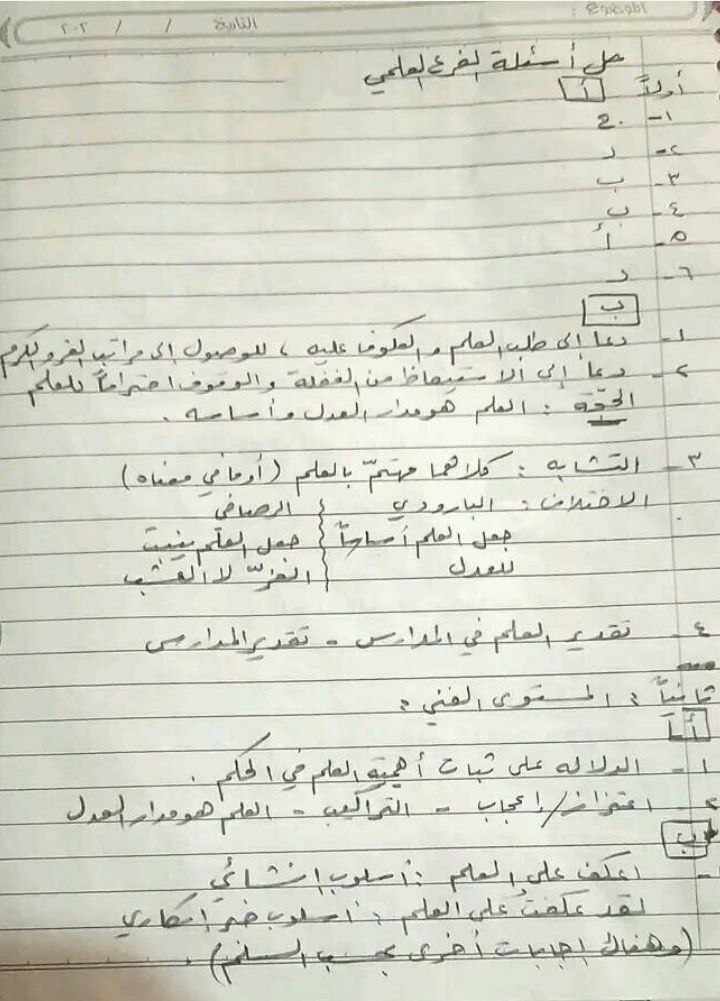 الموضوع :
التاريخ / / ٢٠٢
حل أسئلة الفرع العلمي
أولاً أ
١- ج
٢- د
٣- ب
٤- ب
٥- أ
٦- د
ب
١- دعا إلى طلب العلم و العكوف عليه ، للوصول إلى مراتب العز والكرم
٢- دعا إلى الاستيقاظ من الغفلة والوقوف احتراماً للعلم
الحجّة : العلم هو مدار العدل وأساسه .
٣- التشابه : كلاهما مهتمّ بالعلم (أو ما في معناه)
الاختلاف : البارودي { الرصافي
جعل العلم أساساً { جعل العلم ينبت
للعدل { العزّ لا العشب
٤- تقدير العلم في المدارس - تقدير المدارس
ثانياً : المستوى الفني :
أ
١- الدلالة على ثبات أهمية العلم في الحكم .
٢- اعتزاز/إعجاب - التراكيب - العلم هو مدار العدل
ب
١- اعكف على العلم : أسلوب إنشائي
لقد عكفتُ على العلم : أسلوب خبر إنكاري
(وهناك إجابات أخرى بحسب السلم) .